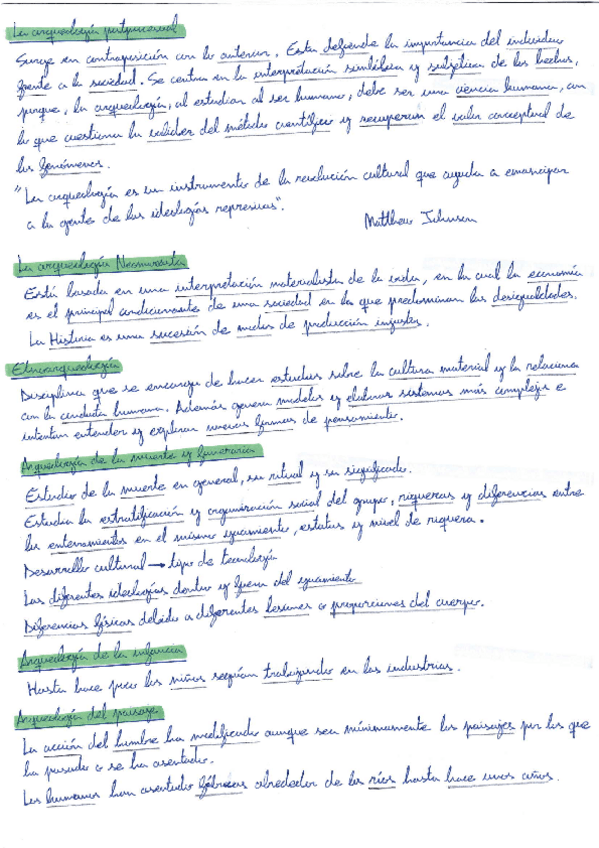 La arqueología postprocesual
Surge en contraposición con la anterior. Esta defiende la importancia del individuo
frente a la sociedad. Se centra en la interpretación simbólica y subjetiva de los hechos,
porque, la arqueología, al estudiar al ser humano, debe ser una ciencia humana, con
lo que cuestiona la validez del método científico y recuperan el valor conceptual de
los fenómenos.
"La arqueología es un instrumento de la revolución cultural que ayuda a emancipar
a la gente de las ideologías represivas".
Matthew Johnson
La arqueología Neomarxista
Está basada en una interpretación materialista de la vida, en la cual la economía
es el principal condicionante de una sociedad en la que predominan las desigualdades.
La Historia es una sucesión de modos de producción injustos.
Etnoarqueología
Disciplina que se encarga de hacer estudios sobre la cultura material y la relaciona
con la conducta humana. Además genera modelos y elabora sistemas más complejos e
intentan entender y explicar nuevas formas de pensamiento.
Arqueología de la muerte y funeraria
Estudio de la muerte en general, su ritual y su significado.
Estudia la estratificación y organización social del grupo, riquezas y diferencias entre
los enterramientos en el mismo yacimiento, estatus y nivel de riqueza.
Desarrollo cultural → tipo de tecnología
Las diferentes ideologías dentro y fuera del yacimiento
Diferencias físicas debido a diferentes lesiones o proporciones del cuerpo.
Arqueología de la infancia
Hasta hace poco los niños seguían trabajando en las industrias.
Arqueología del paisaje
La acción del hombre ha modificado aunque sea mínimamente los paisajes por los que
ha pasado o se ha asentado.
Los humanos han asentado fábricas alrededor de los ríos hasta hace unos años.